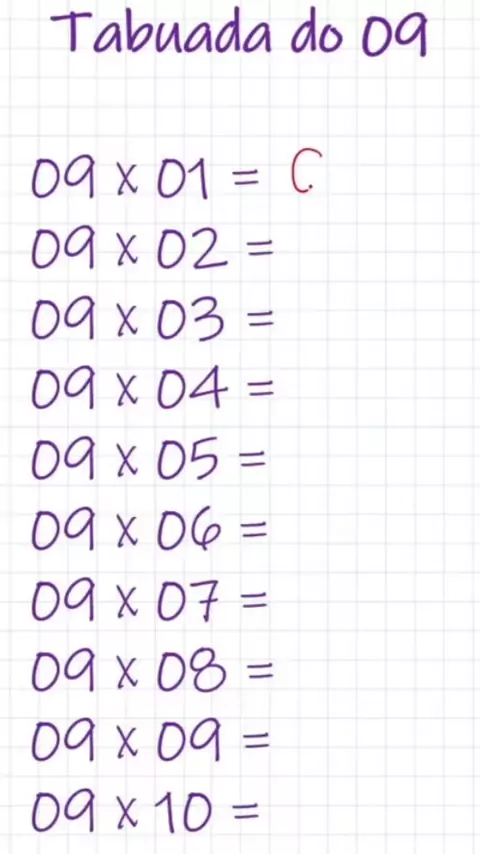 Tabuada do 09
09 x 01 =
09 x 02 =
09 x 03 =
09 x 04 =
09 x 05 =
09 x 06 =
09 x 07 =
09 x 08 =
09 x 09 =
09 x 10 =